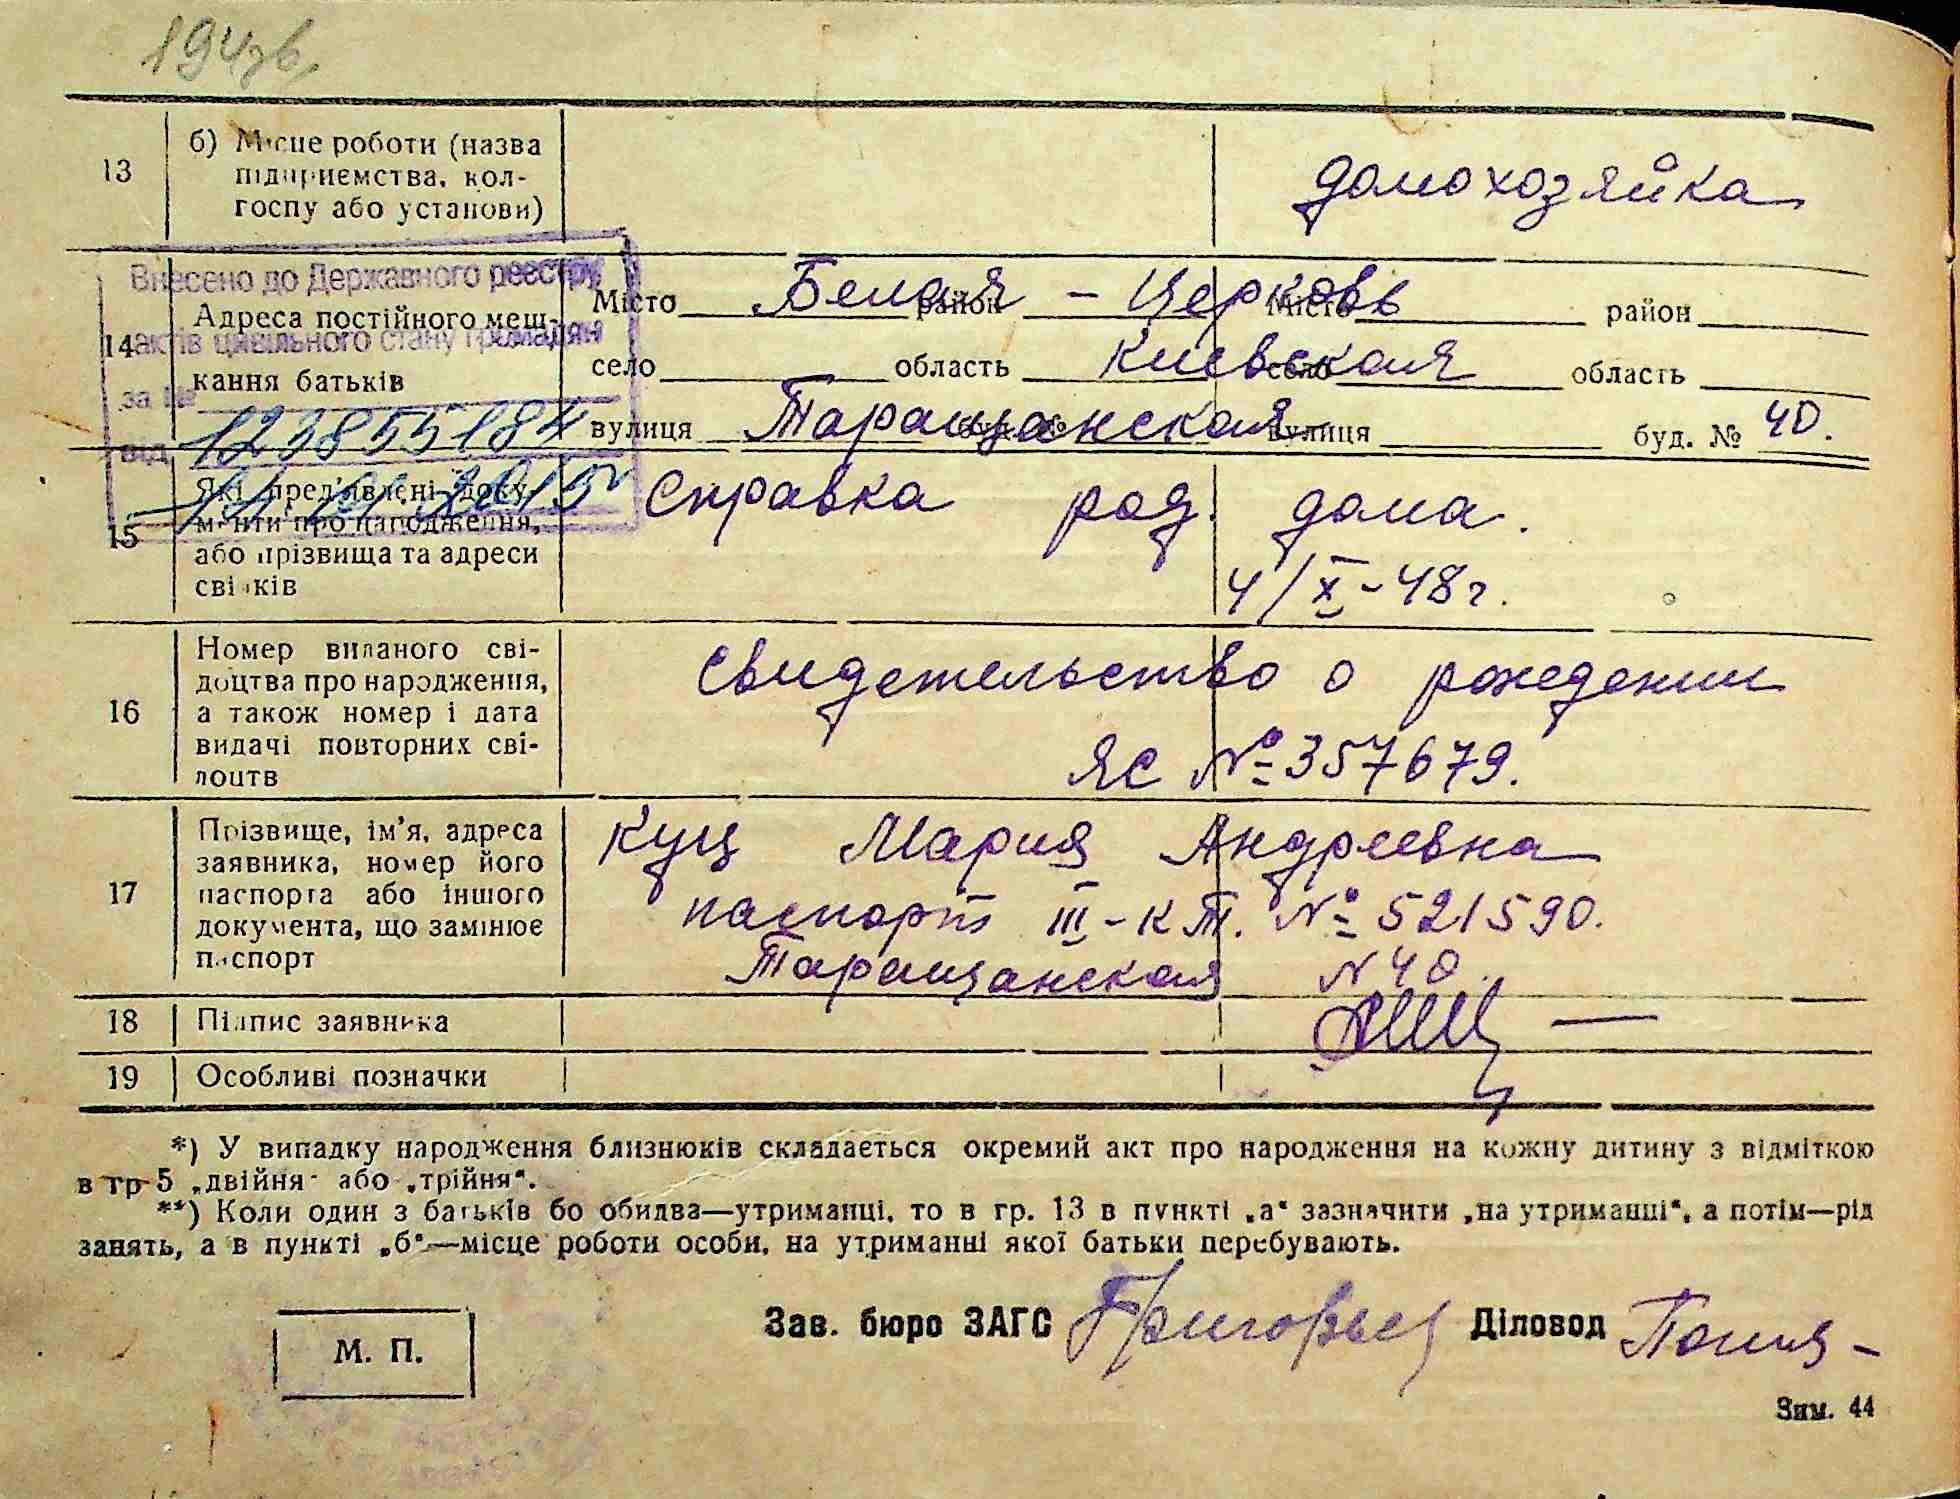 194зв
13
б) Місце роботи (назва
підприємства, кол-
госпу або установи)
домохозяйка
Внесено до Державного реєстру
актів цивільного стану громадян
за №
123855184
від
2015
14
Адреса постійного меш-
кання батьків
Місто Белая - Церковь район Місто район
село область Киевская село область
вулиця Таращанская буд. № вулиця буд. № 40.
15
Які пред'явлені доку-
менти про народження,
або прізвища та адреси
свідків
Справка род. дома.
4/X-48г.
16
Номер виданого сві-
доцтва про народження,
а також номер і дата
видачі повторних сві-
доцтв
Свидетельство о рождении
ЯС № 357679.
17
Прізвище, ім'я, адреса
заявника, номер його
паспорта або іншого
документа, що замінює
паспорт
Куц Мария Андреевна
паспорт III-КТ. № 521590.
Таращанская N 40.
18
Підпис заявника
19
Особливі позначки
*) У випадку народження близнюків складається окремий акт про народження на кожну дитину з відміткою
в гр 5 „двійня" або „трійня".
**) Коли один з батьків бо обидва—утриманці, то в гр. 13 в пункті „а" зазначити „на утриманні", а потім—рід
занять, а в пункті „б"—місце роботи особи, на утриманні якої батьки перебувають.
М. П.
Зав. бюро ЗАГС
Діловод
Зим. 44